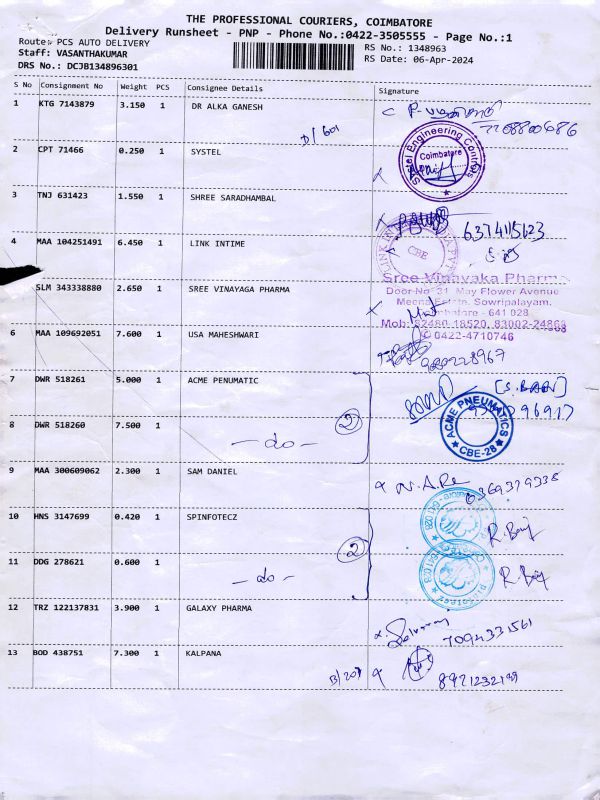 THE PROFESSIONAL COURIERS, COIMBATORE
Delivery Runsheet - PNP - Phone No.:0422-3505555 - Page No.:1
Route: PCS AUTO DELIVERY
Staff: VASANTHAKUMAR
DRS No.: DCJB134896301
RS No.: 1348963
RS Date: 06-Apr-2024
S No Consignment No Weight PCS Consignee Details Signature
1 KTG 7143879 3.150 1 DR ALKA GANESH
D/601
2 CPT 71466 0.250 1 SYSTEL
Coimbatore
3 TNJ 631423 1.550 1 SHREE SARADHAMBAL
6374115623
4 MAA 104251491 6.450 1 LINK INTIME
CBE
SLM 343338880 2.650 1 SREE VINAYAGA PHARMA
Sree Vinayaka Pharma
Door No. 31, May Flower Avenue
Sowripalayam.
641 028
0422-4710746
6 MAA 109692051 7.600 1 USA MAHESHWARI
9802228967
7 DWR 518261 5.000 1 ACME PENUMATIC
2
ACME PNEUMATICS
CBE-28
8 DWR 518260 7.500 1 - do -
9 MAA 300609062 2.300 1 SAM DANIEL
10 HNS 3147699 0.420 1 SPINFOTECZ
2
11 DDG 278621 0.600 1 - do -
12 TRZ 122137831 3.900 1 GALAXY PHARMA
7094331561
13 BOD 438751 7.300 1 KALPANA
B/207